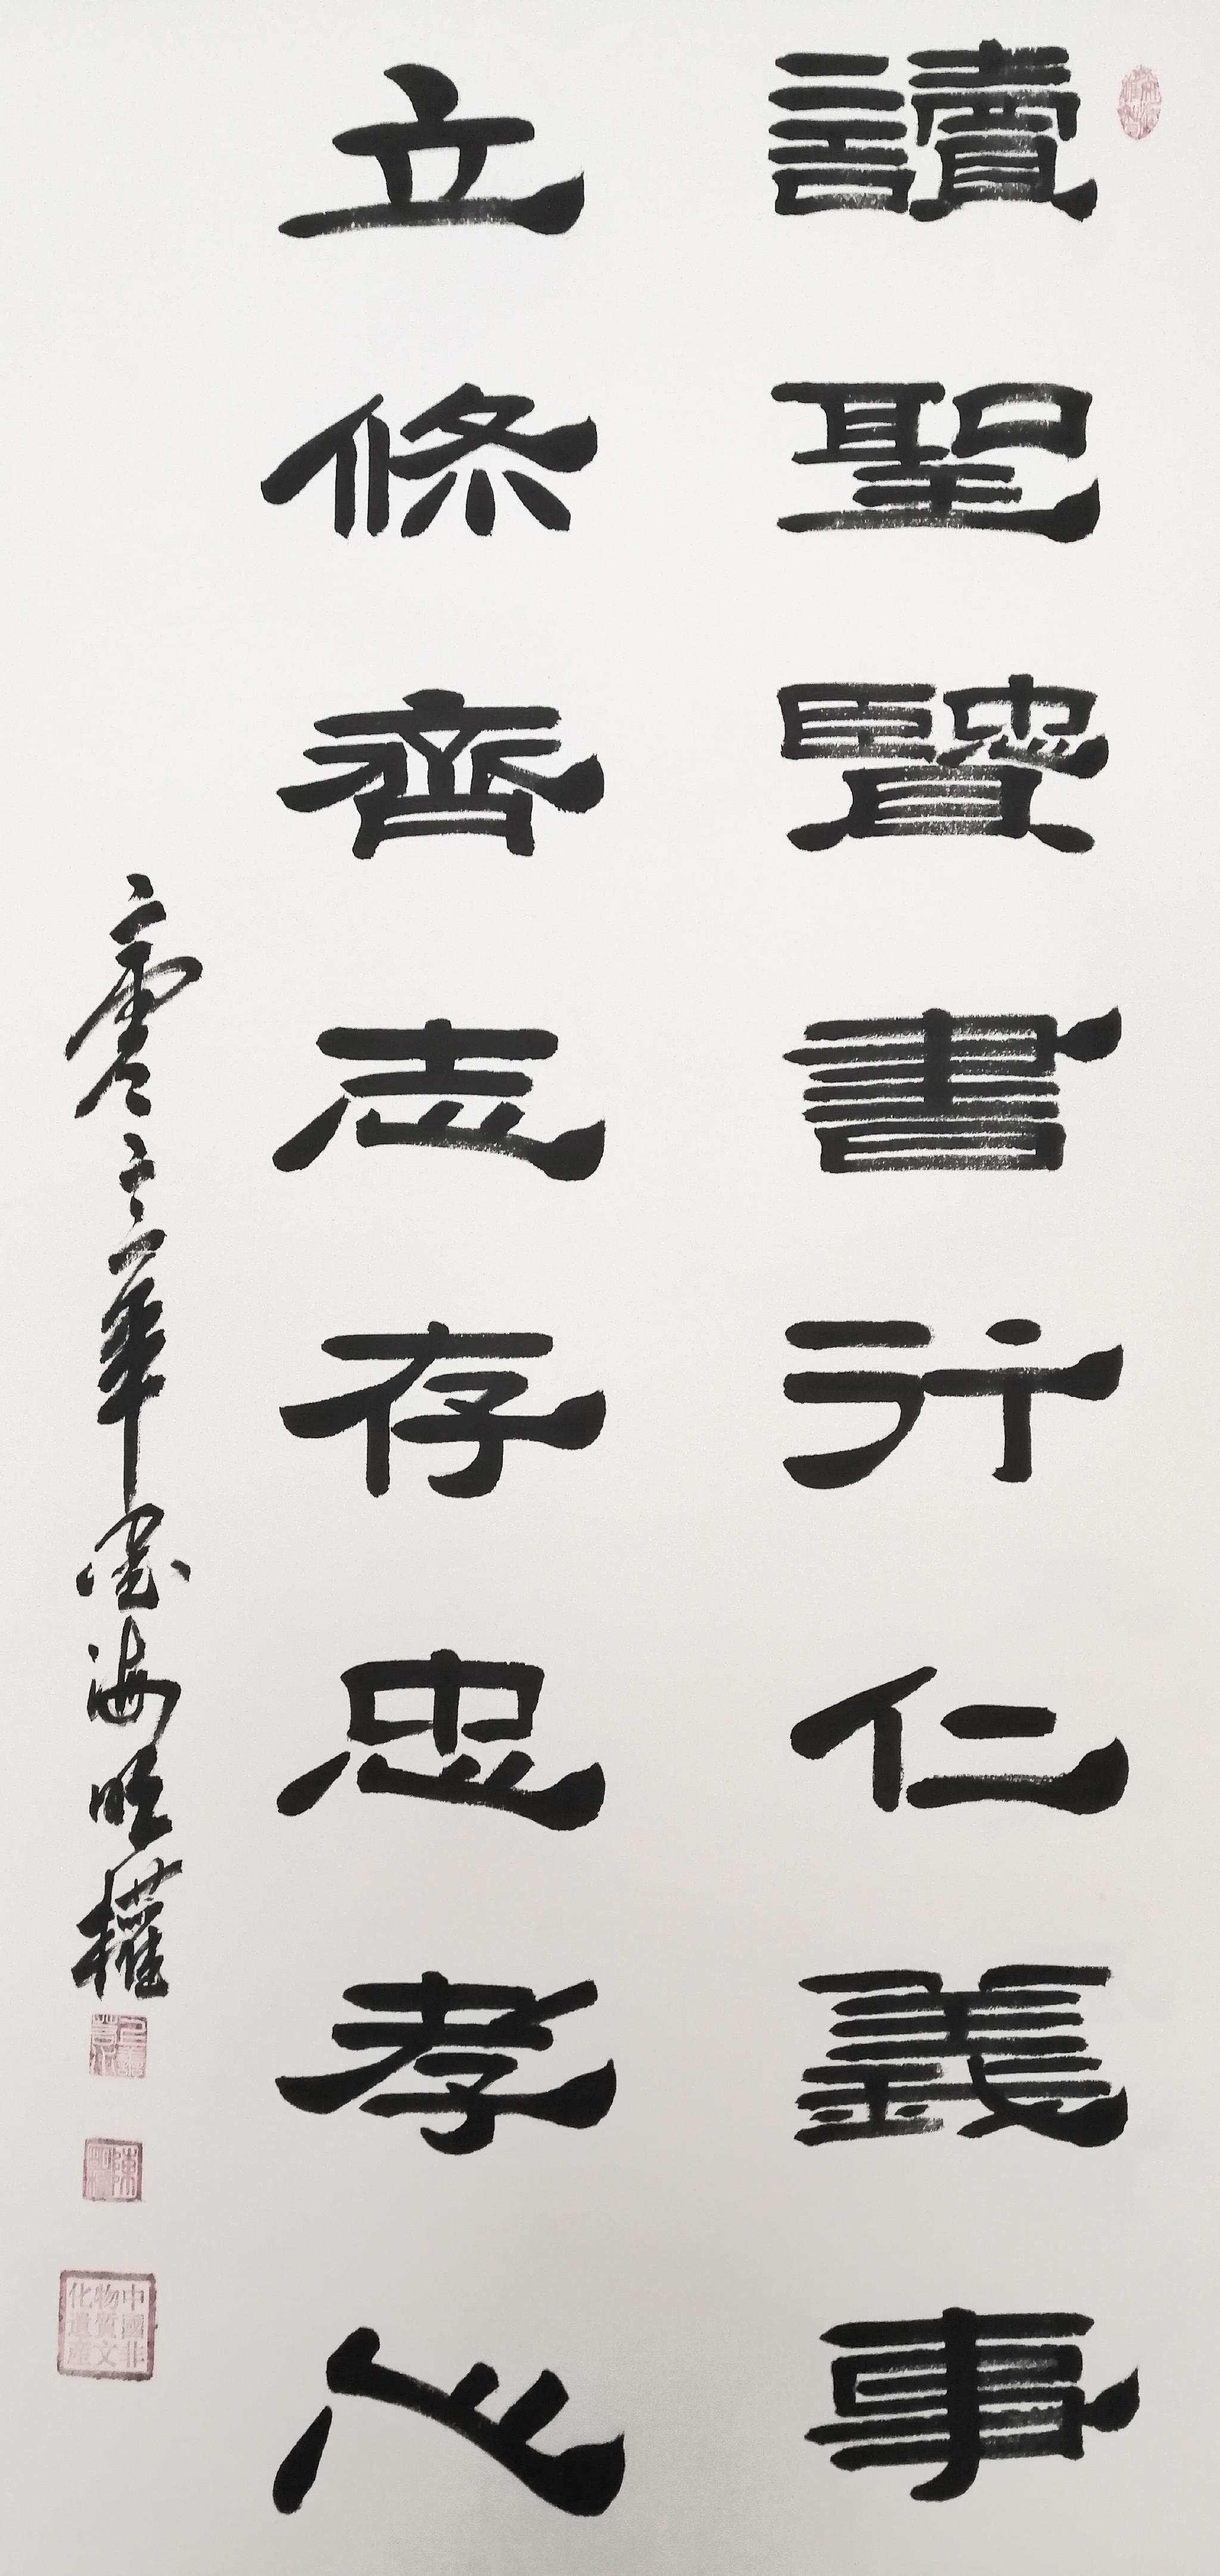 讀聖贒書行仁義事
立修齊志存忠孝心
年墨海權
中國非物質文化遺產